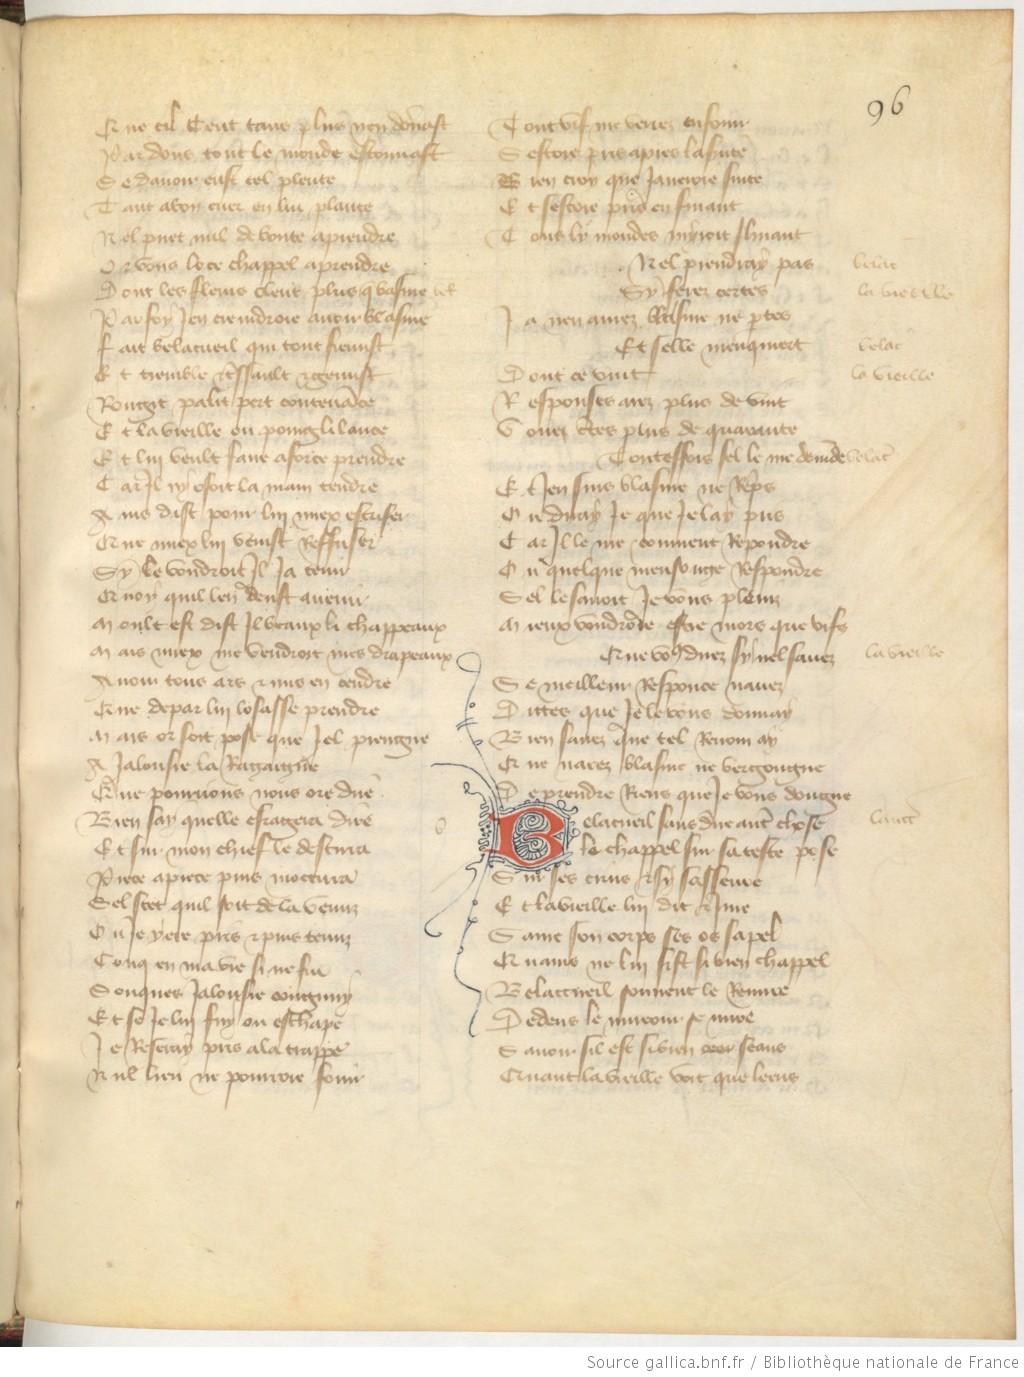 96
Que cil Ceut tans plus nen donast
Par dons tout le monde estonnast
Se davoir eust tel plente
Tant a bon cuer en lui plante
Nel puet nul de bonte aprendre
Or vous lo ce chappel a prendre
Dont les fleurs olent plus q basme
Par foy Jen creindroie avoir blasme
Fait belacueil qui tout fremist
Et tremble & tressault & gemist
Rougit palit pert contenance
Et la vieille ou poing li lance
Et lui veult faire a force prendre
Car Il ny osoit la main tendre
Ains dist pour lui miex escuser
Que miex lui venist Reffuser
Sy le voudroit Il Ja tenir
Quoy quil len deust avenir
Moult est dist Il beaux li chappeaux
Mais miex me vendroit mes drapeaux
Avoir tous ars & mis en cendre
Que de par lui losasse prendre
Mais or soit pose que Jel prengne
A Jalousie la Ragaigne
Que pourrons nous ore dire
Bien say quelle esragera dire
Et sur mon chief le descirra
Piece a piece puis moccirra
Sel scet quil soit de la venuz
Ou Je yere pris & puis tenuz
Conq en ma vie si ne fui
Sonques Jalousie
Et se Je lui fuy ou eschape
Je Reseray pris a la trappe
Nul lieu ne pourroie fouir
Tout vif me verrez enfouir
Sestoie pris apres la fuite
Bien croy que Javeroie suite
Et sestoie pris en fuiant
Tous ly mondes myroit huiant
Nel prendray pas belac
Sy ferez certes la vieille
Ja nen aurez blasme ne ptes
Et selle menquiert belac
Dont ce vint la vieille
Responses arez plus de vint
Voire certes plus de quarante
Toutessois sel le me demande belac
Et Jen suis blasme ne Repris
Ou diray Je que Je lay pris
Car Il le me convient Repondre
Ou quelque mensonge Respondre
Sel le savoit Je vous plevis
Mieux voudroie estre mors que vifs
Que vous direz sy nel savez la vieille
Se meilleur Responce navez
Dittes que Je le vous donnay
Bien savez que tel Renom ay
Que narez blasme ne vergongne
De prendre Riens que Je vous dongne
Belacueil sans dire autre chose laucteur
Le chappel sur sa teste pose
Sur ses crins & sy sasseure
Et la vieille lui Rit & Jure
Same son corps ses os sa pel
Quains ne lui sist si bien chappel
Belaccueil souvent le Remire
Dedens le mirouir se mire
Savoir sil est si bien seans
Quant la vieille voit que leens
Source gallica.bnf.fr / Bibliothèque nationale de France